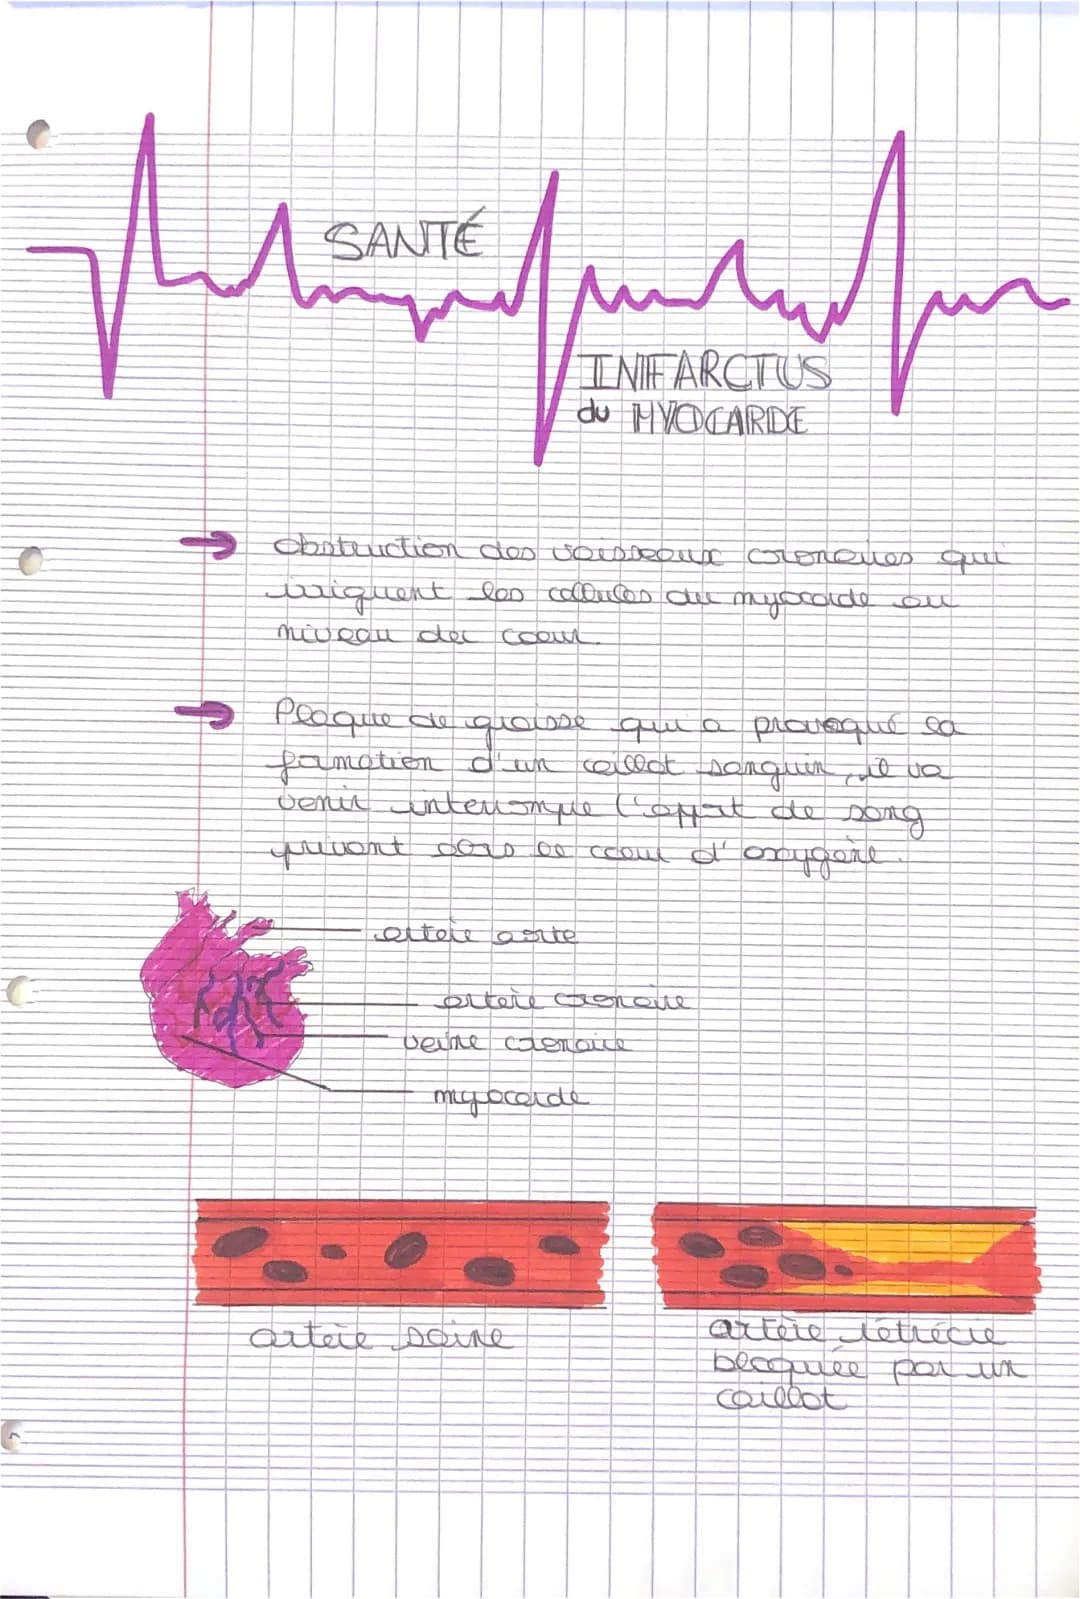 SANTÉ
INFARCTUS
du MYOCARDE
Obstruction des vaisseaux coronaires qui
irriguent les cellules du myocarde au
niveau du coeur.
Plaque de graisse qui a provoqué la
formation d'un caillot sanguin, il va
venir interrompre l'apport de sang
privant dans le coeur d'oxygène.
artère aorte
artère coronaire
veine coronaire
myocarde
artère saine
artère rétrécie
bloquée par un
caillot